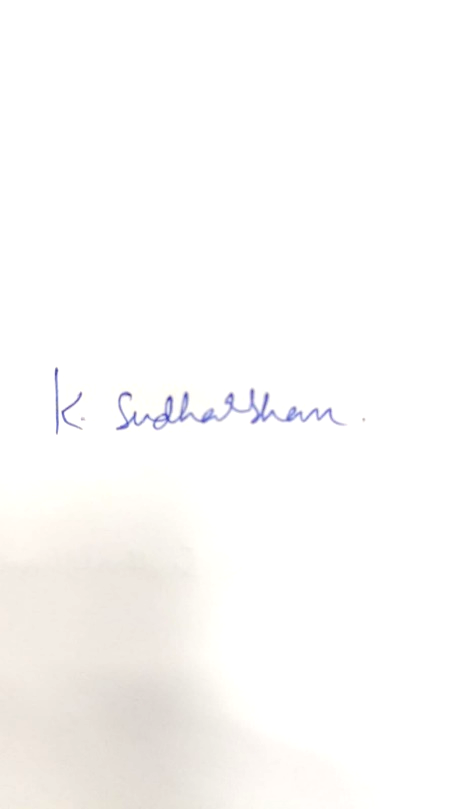 K. Sudharshan.